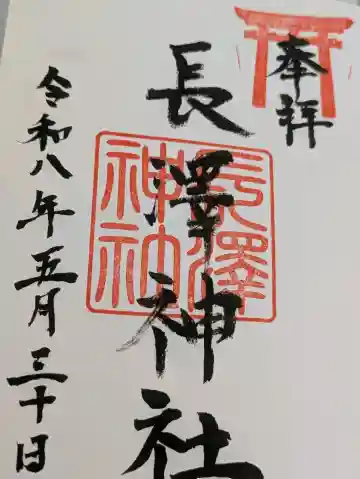 奉拝
長澤神社
長澤神社
令和八年五月三十日